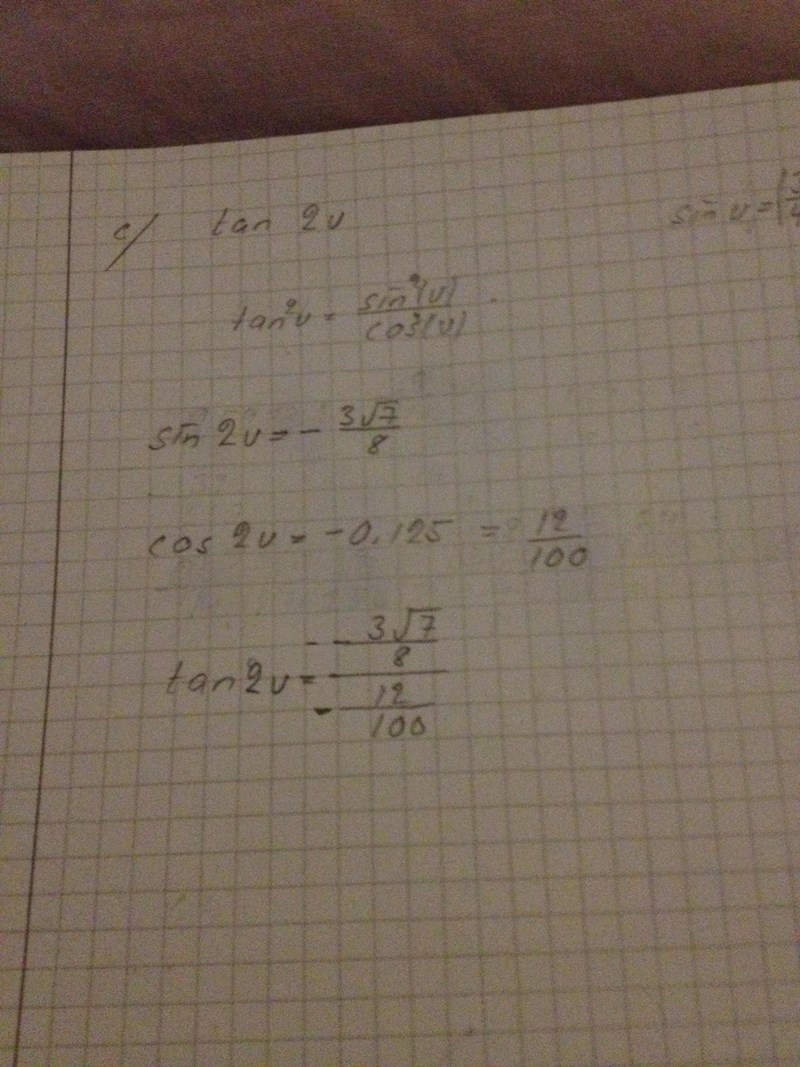 c/ tan 2v
sin v =
tan²v = sin²(v) / cos²(v)
sin 2v = - 3√7 / 8
cos 2v = -0.125 = 12 / 100
tan 2v = - 3√7 / 8 / - 12 / 100